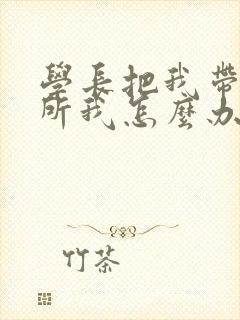 學長把我帶
所我怎麼办
竹茶